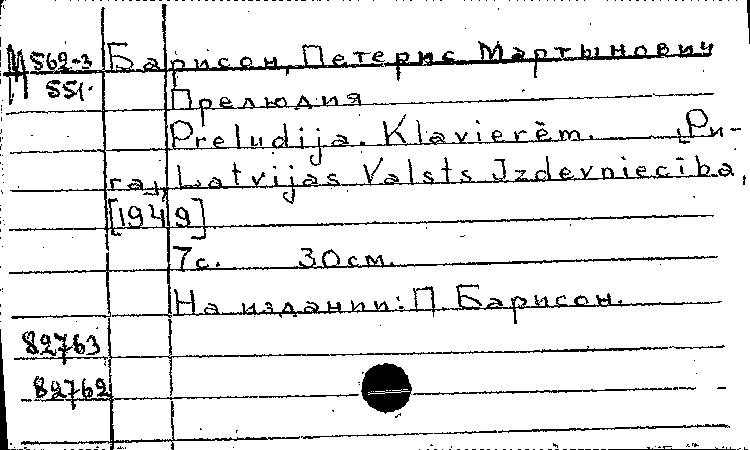 М 562-3 Барисон, Петерис Мартынович
551.
Прелюдия
Preludija. Klavierēm. [Ри-
га], Latvijas Valsts Izdevniecība,
[1949]
7с. 30см.
На издании: П. Барисон.
82763
82762